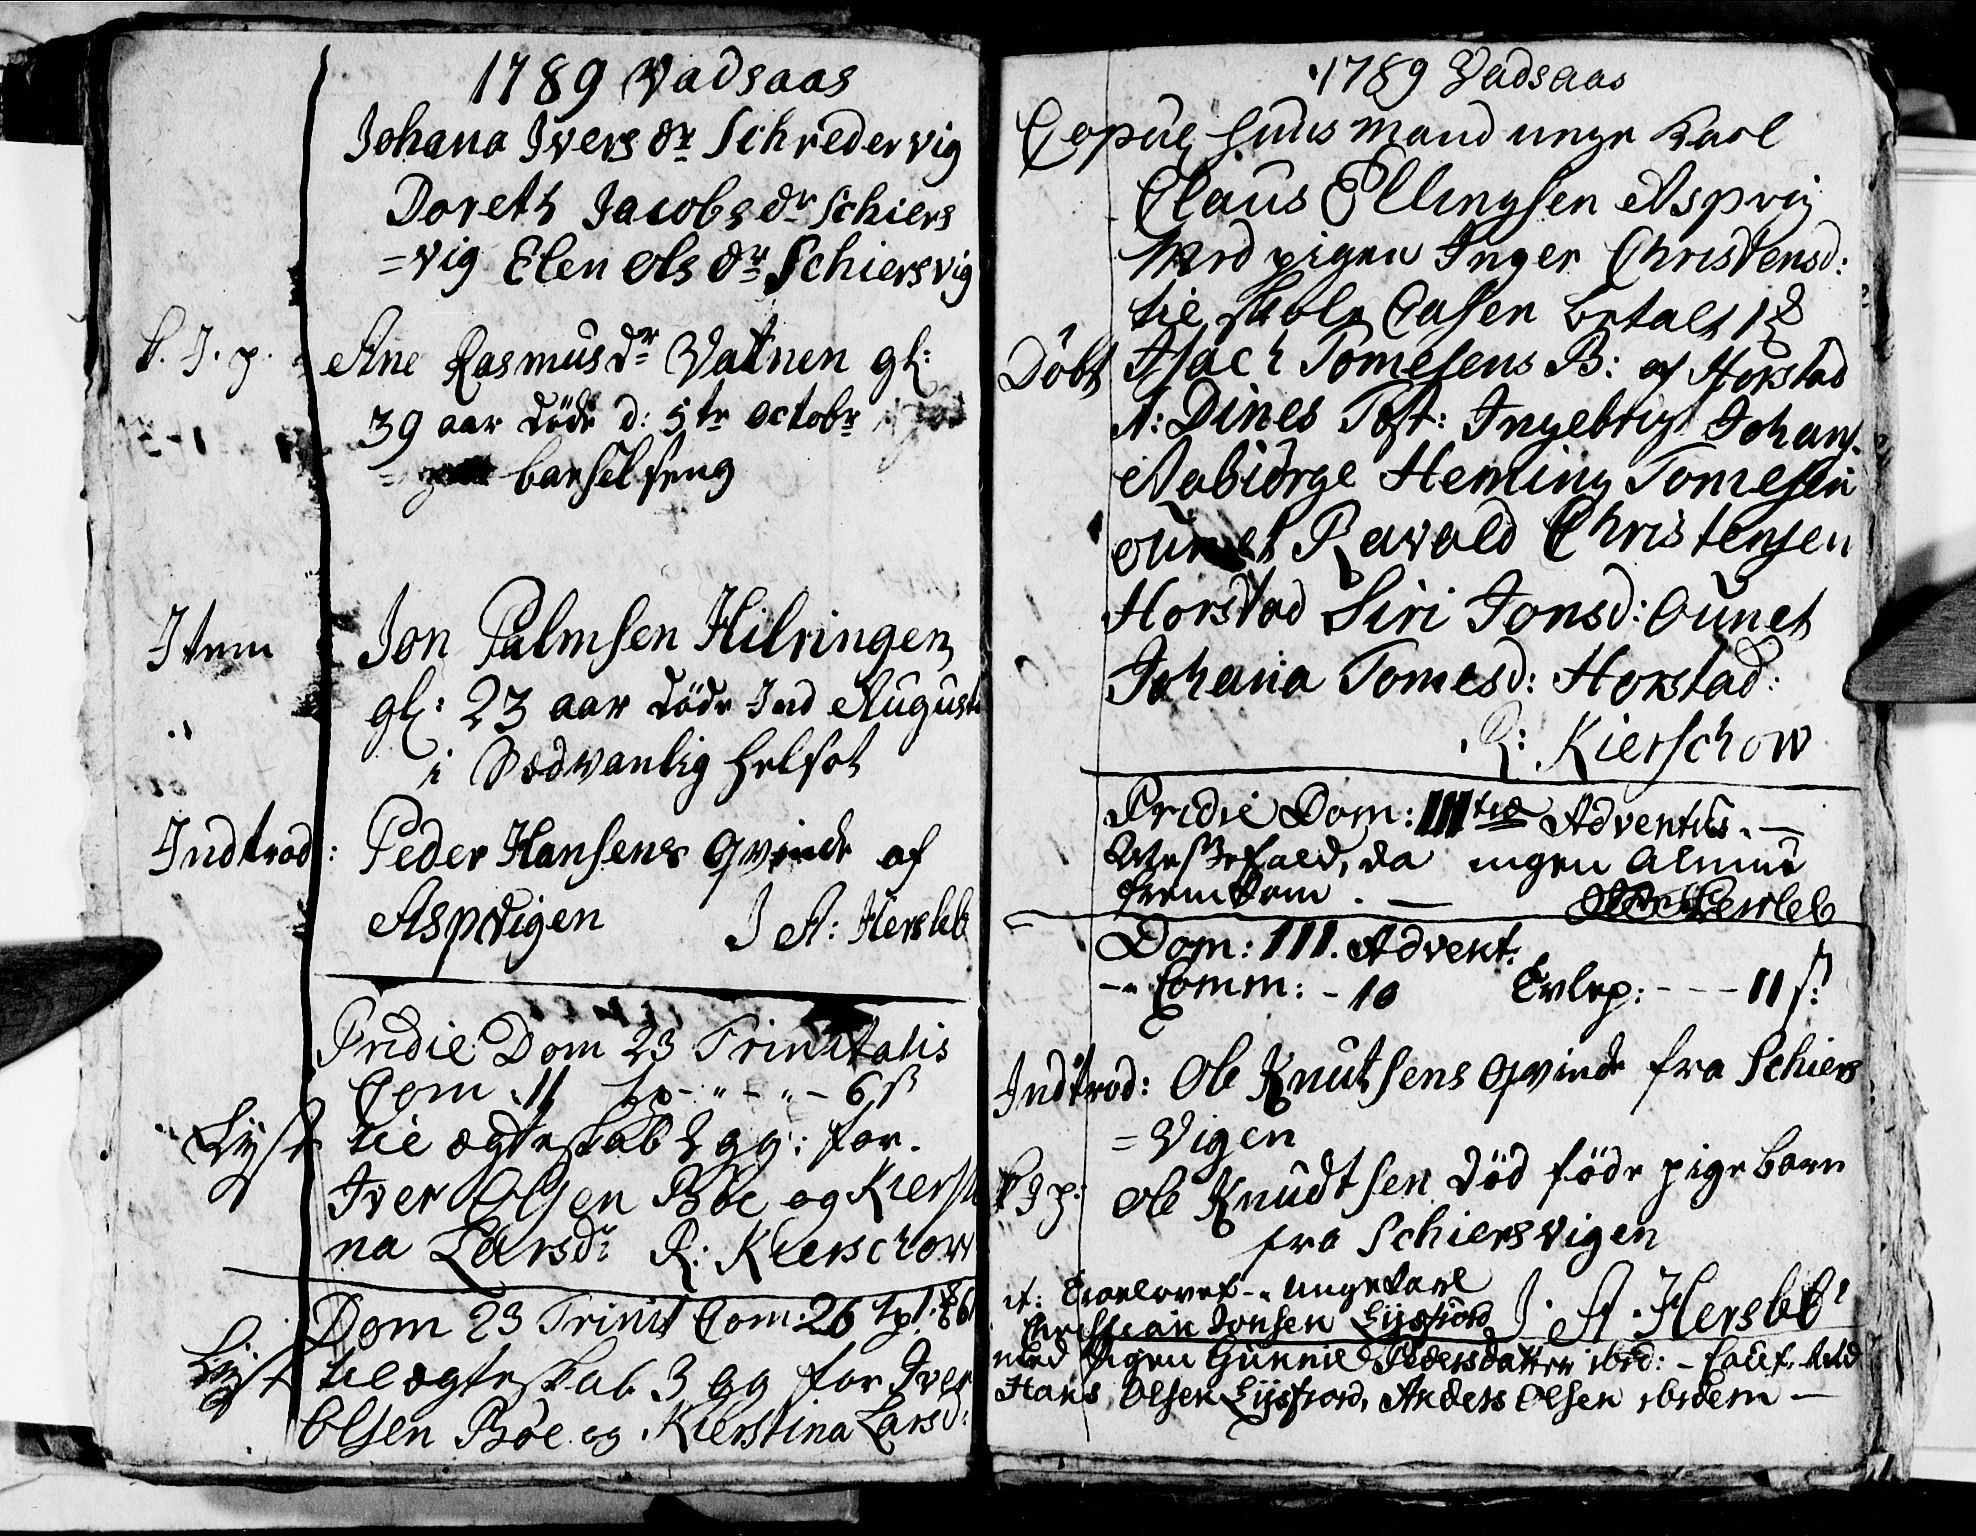 1789 Vadsaas
Johana Ivers dr Schredervig
Doreth Jacobs dr Schiers
=vig Elen Ols dr Schiersvig
J. p. Ane Rasmus dr Vatnen gl:
39 aar döde d: 5te octobr
barselseng
Item Jon Palmsen Hilringen
gl: 23 aar döde Ind August
i Sædvanlig helsot
Indtrod: Peder Hansens qvinde af
Aspvigen J A: Hersleb
Pridie Dom 23 Trinitatis
Com. 11 6 ß
Lyst til ægteskab 2 gg: for.
Iver Olsen Böe og Kiersti
na Larsdr R: Kierschow
Dom 23 Trinit Com: 26
Lyst til ægteskab 3 gg for Iver
Olsen Böe og Kierstina Larsd:
1789 Vadsaas
Copul huusmand unge karl
Claus Ellingsen Aspvig
med pigen Inger Christensd:
til skole Casen betalt 1
Döbt Isach Tomesens B: af Horstad
N: Dines Test: Ingebrigt Johans.
Nabiörge Heming Tomesen
ounet Ravald Christensen
Horstad Siri Jonsd: Ounet
Johana Tomesd: Horstad:
R: Kierschow
Pridie Dom: IIItiæ Adventus. —
Messefald, da ingen Almue
fremkom. — Hersleb
Dom: III. Advent.
Comm: - 10 - - - 11 ß:
Indtrod: Ole Knutsens qvinde fra Schiers
=vigen
J p: Ole Knudtsen dödföde pigebarn
fra Schiersvigen
it: Troelovet - ungekarl
Christian Jonsen Lysfiord J. A. Hersleb
med Pigen Gunnil Pedersdatter ibid: -
Hans Olsen Lysfiord, Anders Olsen ibidem —